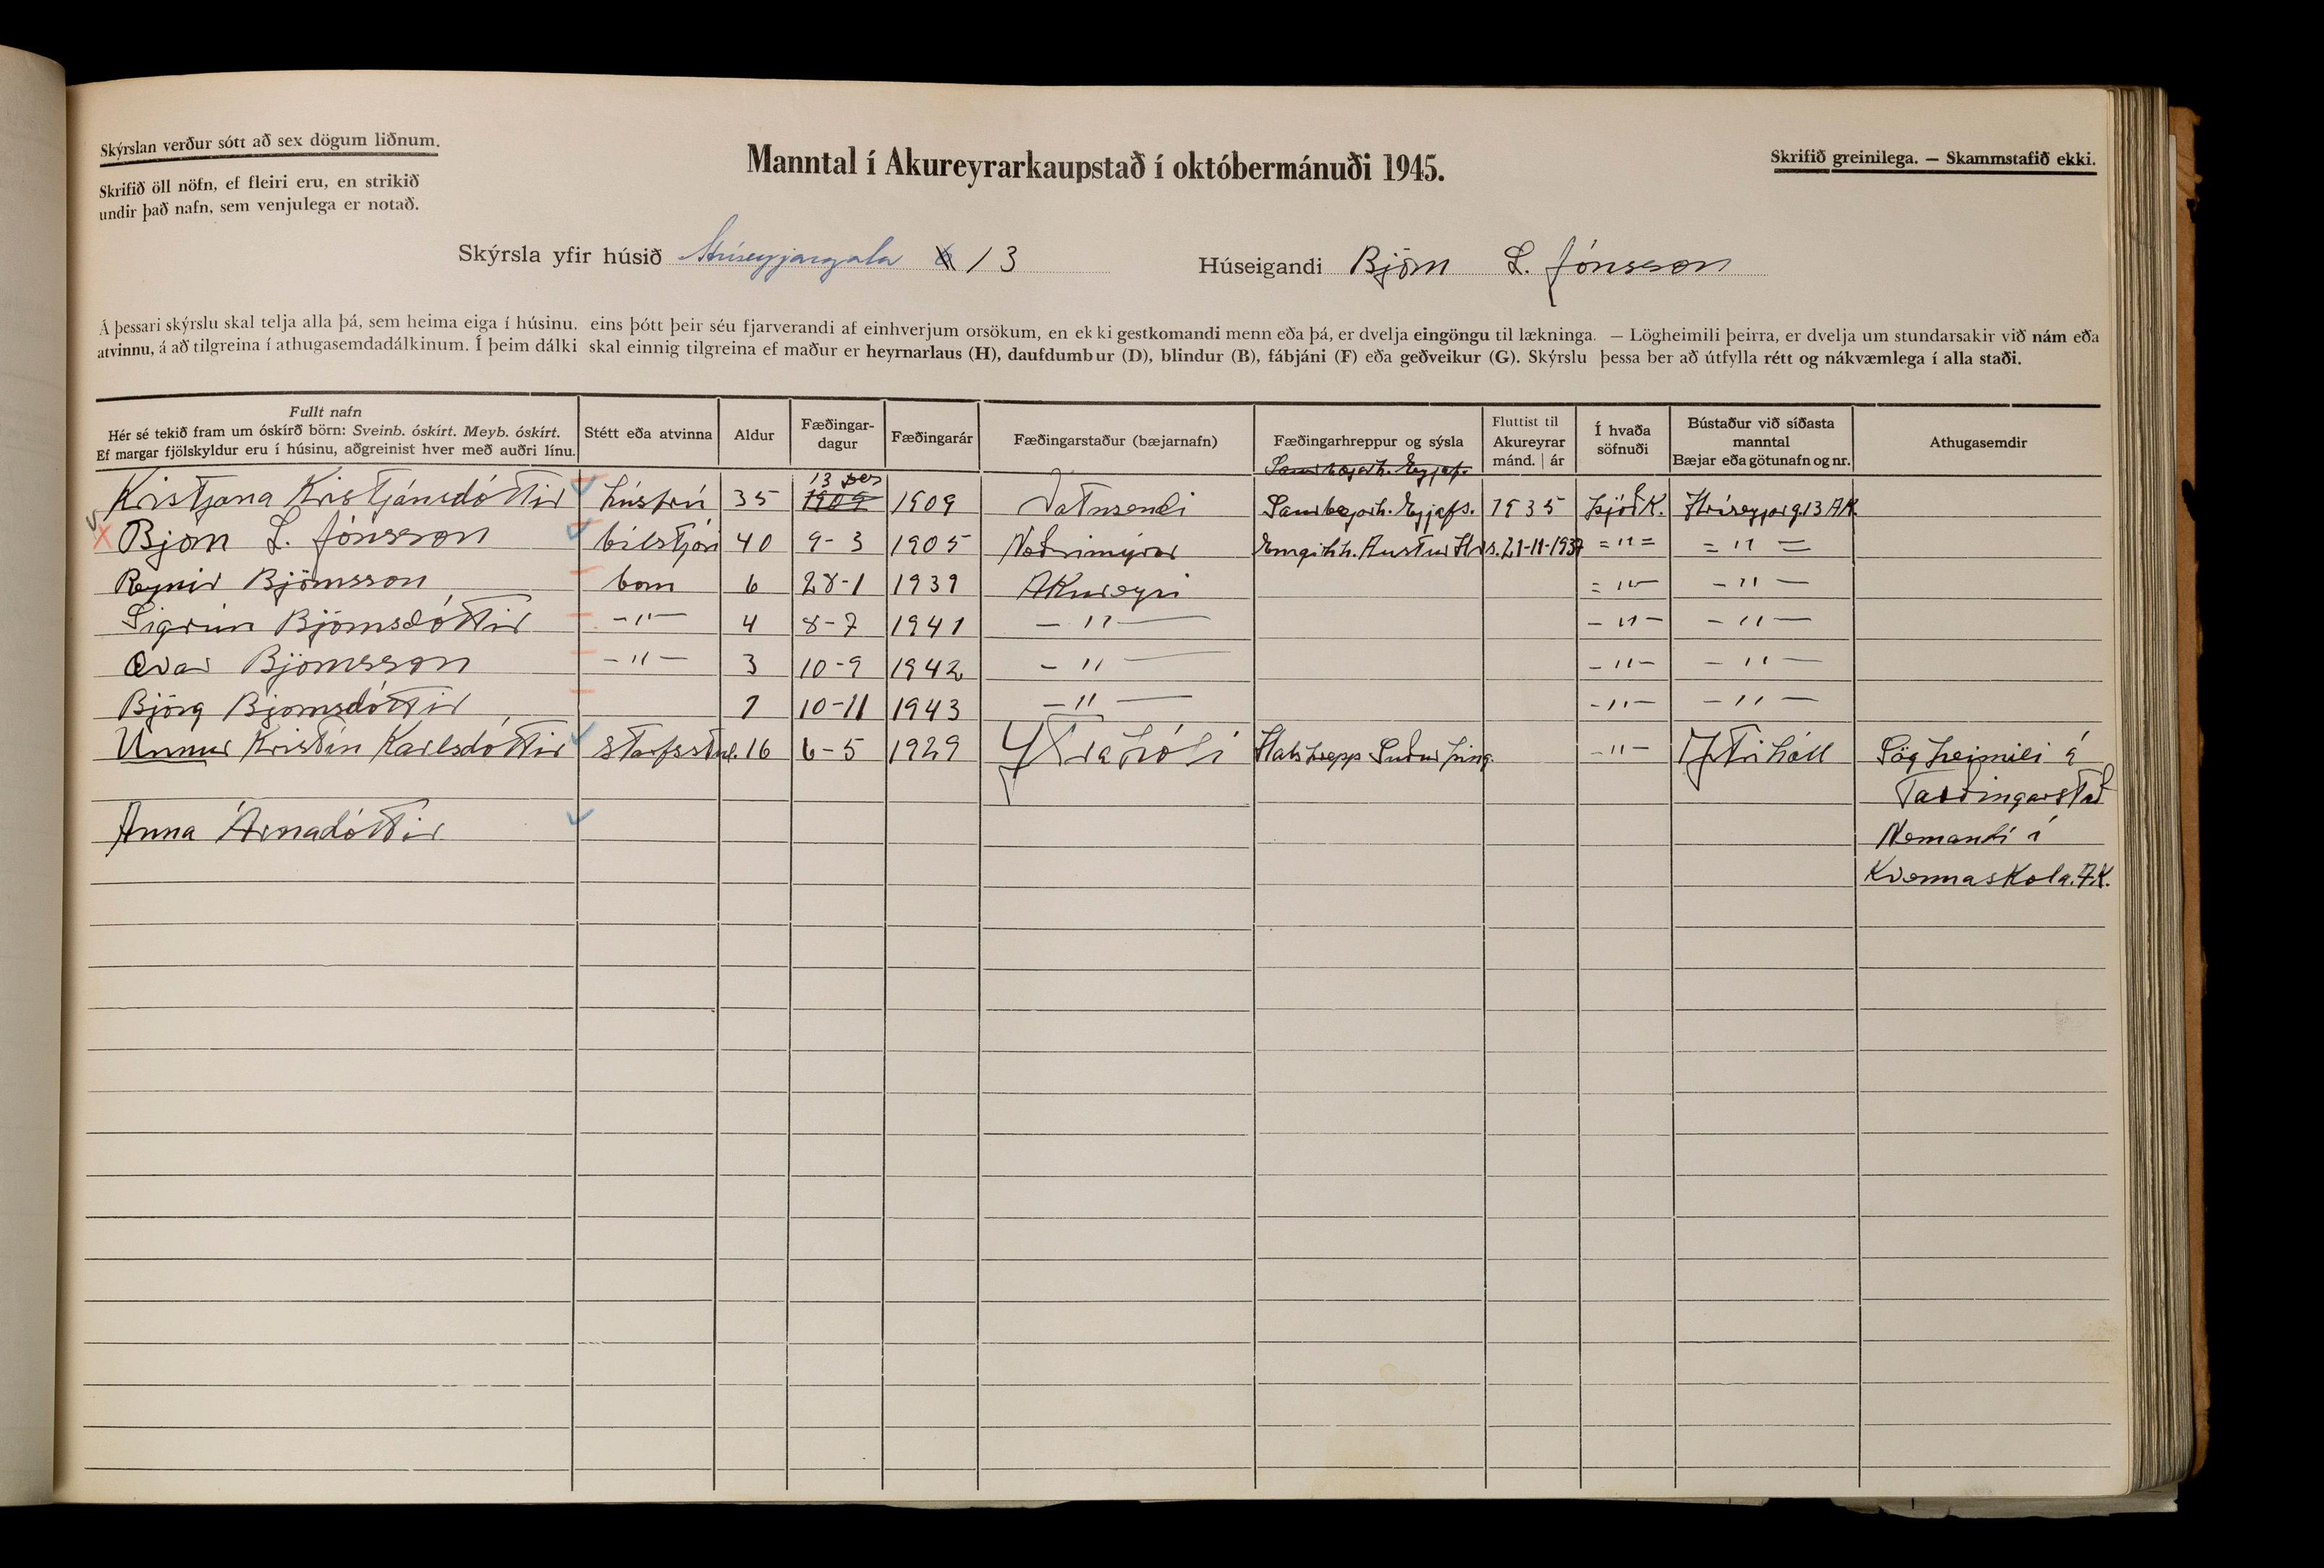 Skýrslan verður sótt að sex dögum liðnum.
Skrifið öll nöfn, ef fleiri eru, en strikið
undir það nafn, sem venjulega er notað.
Manntal í Akureyrarkaupstað í októbermánuði 1945.
Skrifið greinilega. — Skammstafið ekki.
Skýrsla yfir húsið Hríseyjargata 13
Húseigandi Björn L. Jónsson
Á þessari skýrslu skal telja alla þá, sem heima eiga í húsinu, eins þótt þeir séu fjarverandi af einhverjum orsökum, en ekki gestkomandi menn eða þá, er dvelja eingöngu til lækninga. — Lögheimili þeirra, er dvelja um stundarsakir við nám eða
atvinnu, á að tilgreina í athugasemdadálkinum. Í þeim dálki skal einnig tilgreina ef maður er heyrnarlaus (H), daufdumbur (D), blindur (B), fábjáni (F) eða geðveikur (G). Skýrslu þessa ber að útfylla rétt og nákvæmlega í alla staði.
Fullt nafn
Hér sé tekið fram um óskírð börn: Sveinb. óskírt. Meyb. óskírt.
Ef margar fjölskyldur eru í húsinu, aðgreinist hver með auðri línu.
Stétt eða atvinna
Aldur
Fæðingar-
dagur
Fæðingarár
Fæðingarstaður (bæjarnafn)
Fæðingarhreppur og sýsla
Fluttist til
Akureyrar
mánd. | ár
Í hvaða
söfnuði
Bústaður við síðasta
manntal
Bæjar eða götunafn og nr.
Athugasemdir
13 des Saurbæjarh. Eyjaf.
Kristjana Kristjánsdóttir húsfrú 35 1909 1909 Jatnsendi Saurbæjarh. Eyjafs. 1935 Þjóðk. Hríseyjarg. 13 AK
Bjorn L. Jónsson bílstjóri 40 9-3 1905 Neðrimýrar Engihh. Austur Hvs. 21-11-1937 = " = = " =
Reynir Björnsson barn 6 28-1 1939 Akureyri = " - - " -
Sigrún Björnsdóttir - " - 4 8-7 1941 - " - - " - - " -
Ævar Björnsson - " - 3 10-9 1942 - " - - " - - " -
Björg Bjornsdóttir 1 10-11 1943 - " - - " - - " -
Unnur Kristín Karlsdóttir starfsstúl. 16 6-5 1929 Ytrahóli Hálshrepp Suður Þing. - " - Ytrihóll Lögheimili á
Fæðingarstað
Anna Árnadóttir Nemandi í
Kvennaskola. AK.